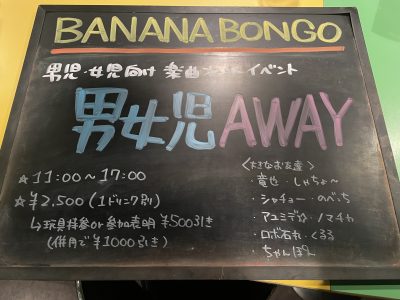 BANANA BONGO
男児・女児向け 楽曲オンリーイベント
男女児AWAY
☆11:00〜17:00
☆¥2,500(1ドリンク別)
↳玩具持参or参加表明 ¥500引き
(併用で¥1000引き)
〈大きなお友達〉
・竜也・しゃちょ〜
・シャチョー・のべっち
・アユミデオ・ノマチャ
・ロボ石丸・くるる
・ちゃんぽん